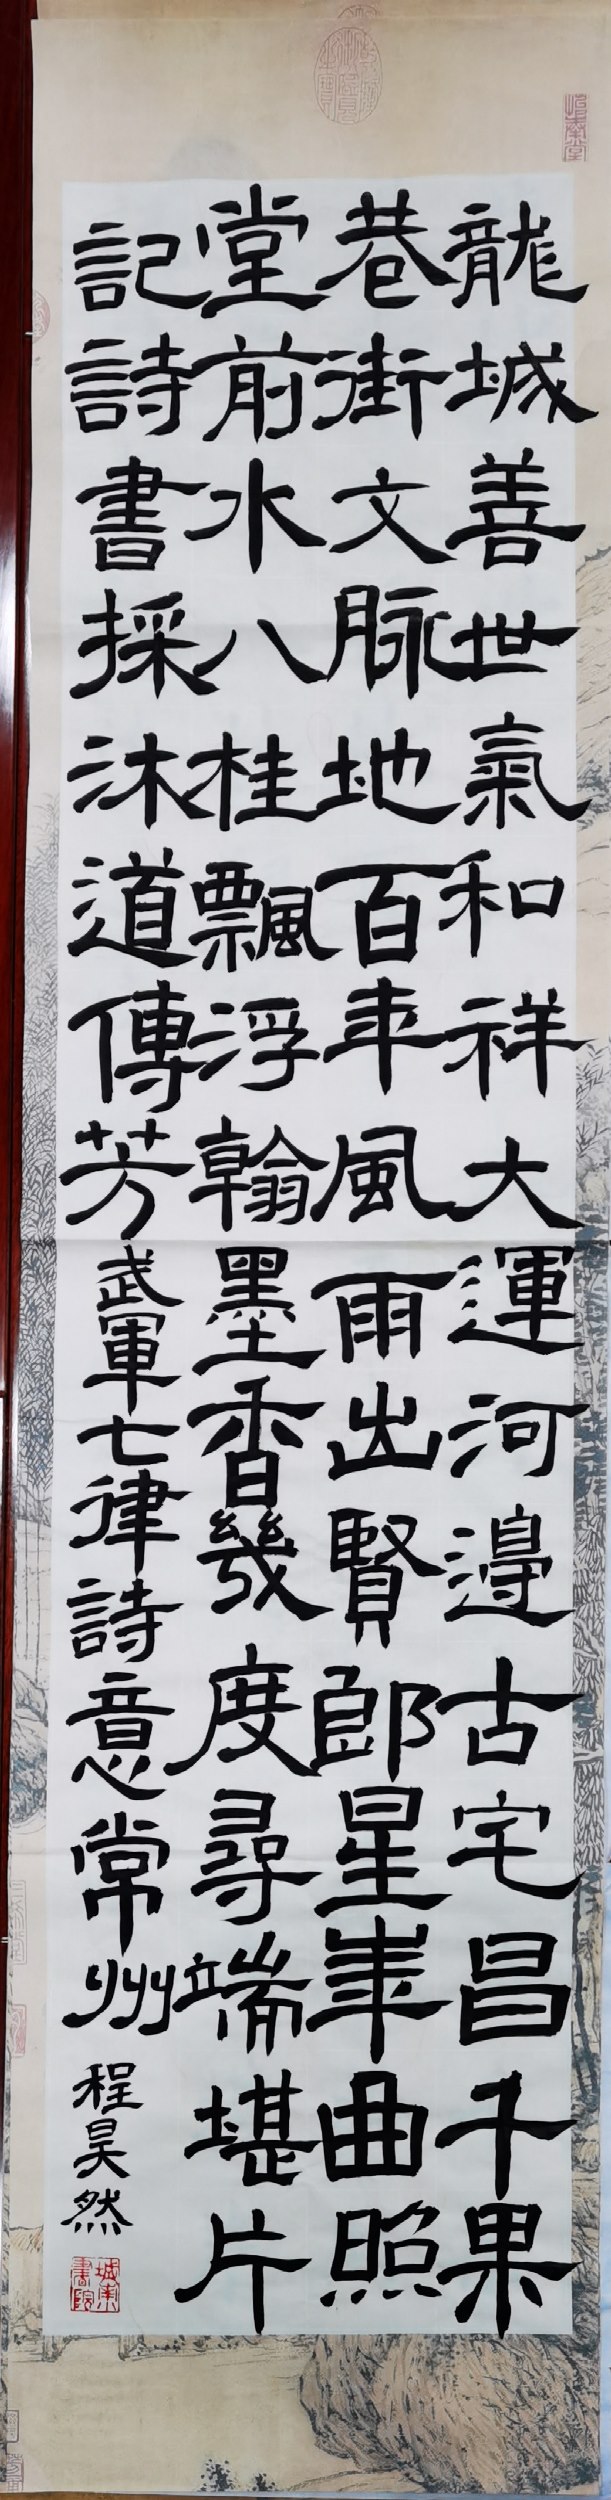 龍城善世氣和祥大運河邊古宅昌千果
巷街文脉地百年風雨出賢郎星華曲照
堂前水八桂飄浮翰墨香幾度尋端堪片
記詩書採沐道傳芳武軍七律詩意常州
程昊然
城南書院